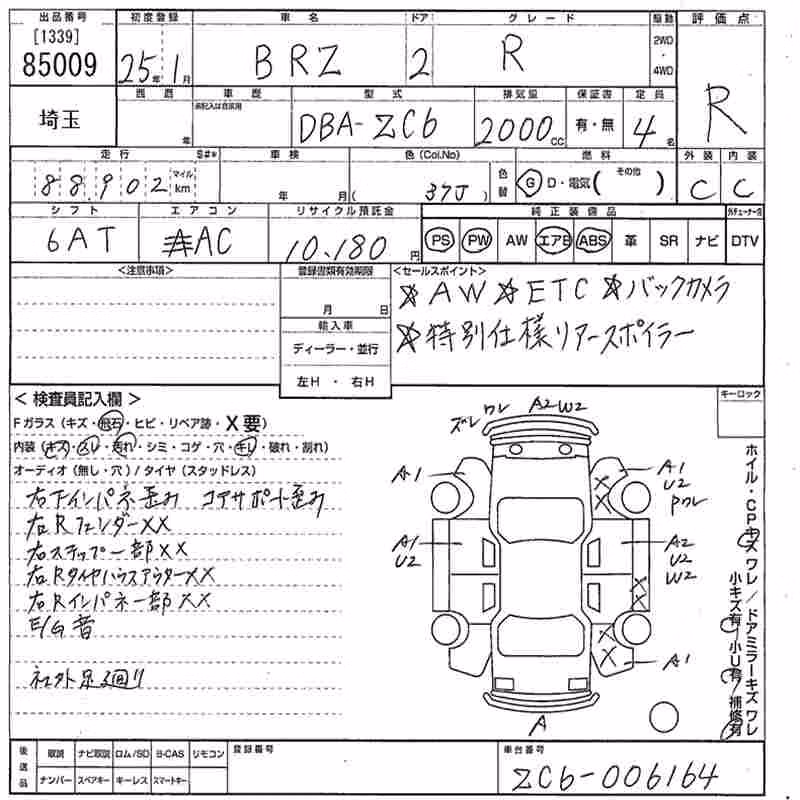 出品番号 初度登録 車名 ドア グレード 駆動 評価点
[1339]
85009 25年 1月 BRZ 2 R 2WD・4WD R
埼玉 車歴 型式 排気量 保証書 定員
年 DBA-ZC6 2000cc 有・無 4名
走行 車検 色(Col.No) 色替 燃料 外装 内装
88,902 マイル km 年 月 ( 37J ) G D・電気( その他 ) C C
シフト エアコン リサイクル預託金 純正装備品
6AT AC 10,180円 PS PW AW エアB ABS 革 SR ナビ DTV
<注意事項> 登録書類有効期限 <セールスポイント>
月 日 ☆AW ☆ETC ☆バックカメラ
輸入車 ☆特別仕様リアースポイラー
ディーラー・並行
左H・右H
<検査員記入欄> キーロック
Fガラス(キズ・飛石・ヒビ・リペア跡・X要)
内装(キズ・スレ・汚れ・シミ・コゲ・穴・キレ・破れ・割れ)
オーディオ(無し・穴)/タイヤ(スタッドレス)
右Fインパネ歪み コアサポート歪み
右RフェンダーXX
右ステップ一部XX
右RタイヤハウスアウターXX
右Rインパネ一部XX
E/G音
社外足廻り
ズレ ワレ A2 W2
A1 A1 U2 Pワレ
A1 U2 A2 U2 W2
A1
A
ホイル・CPキズ ワレ/ドアミラーキズ ワレ
小キズ有/小U有/補修有
後送品 取説 ナビ取説 ロム/SD B-CAS リモコン 登録番号 車台番号
ナンバー スペアキー キーレス スマートキー ZC6-006164